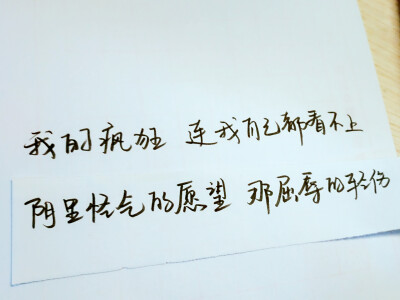 我的疯狂 连我自己都看不上
阴里怪气的愿望 那屈辱的轻伤